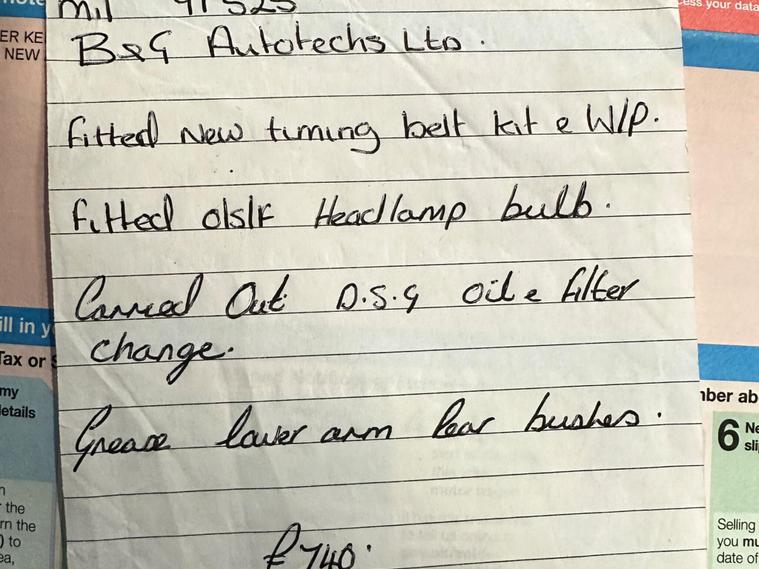 note
mil 91525
ess your data
ER KE
NEW
B&G Autotechs Ltd.
Fitted New timing belt kit & W/P.
fitted o/s/f Headlamp bulb.
Carried Out D.S.G Oil & filter
change.
Grease lower arm rear bushes.
£740.
ill in y
Tax or s
my
etails
n
r the
rn the
) to
ea,
mber ab
6 Ne
sli
Selling
you mu
date of